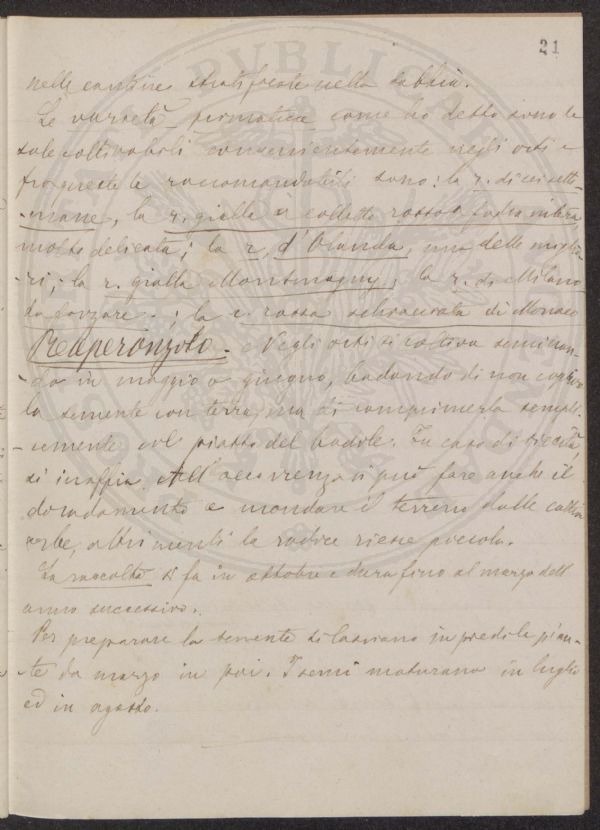 21
nelle cantine stratificate nella sabbia.
Le varietà primaticcie come ho detto sono le
sole coltivabili convenientemente negli orti e
fra queste le raccomandabili sono: la r. di sei setti-
-mane, la r. gialla a colletto rosso a foglia intera,
molto delicata; la r. d'Olanda, una delle miglio-
-ri; la r. gialla Montmagny; la r. di Milano
da forzare.; la r. rossa schiacciata di Monaco
Raperonzolo. Negli orti si coltiva seminan-
do in maggio o giugno, badando di non coprire
la semente con terra, ma di comprimerla sempli-
-cemente col piatto del badile. In caso di siccità,
si inaffia. All'occorrenza si può fare anche il
diradamento e mondare il terreno dalle cattive
erbe, altrimenti la radice riesce piccola.
La raccolta si fa in ottobre e dura fino al marzo dell'
anno successivo.
Per preparare la semente si lasciano in piedi le pian-
-te da marzo in poi. I semi maturano in luglio
ed in agosto.